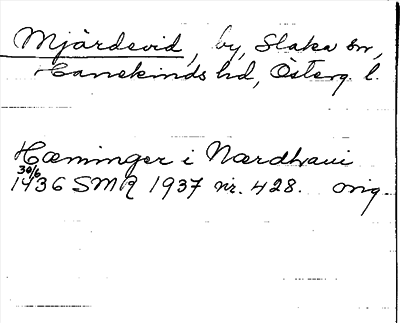 Mjärdevid, by, Slaka sn,
Hanekinds hd, Österg. l.
Hæminger i Nærdhraui
30/6
1436 SMR 1937 nr. 428. orig.